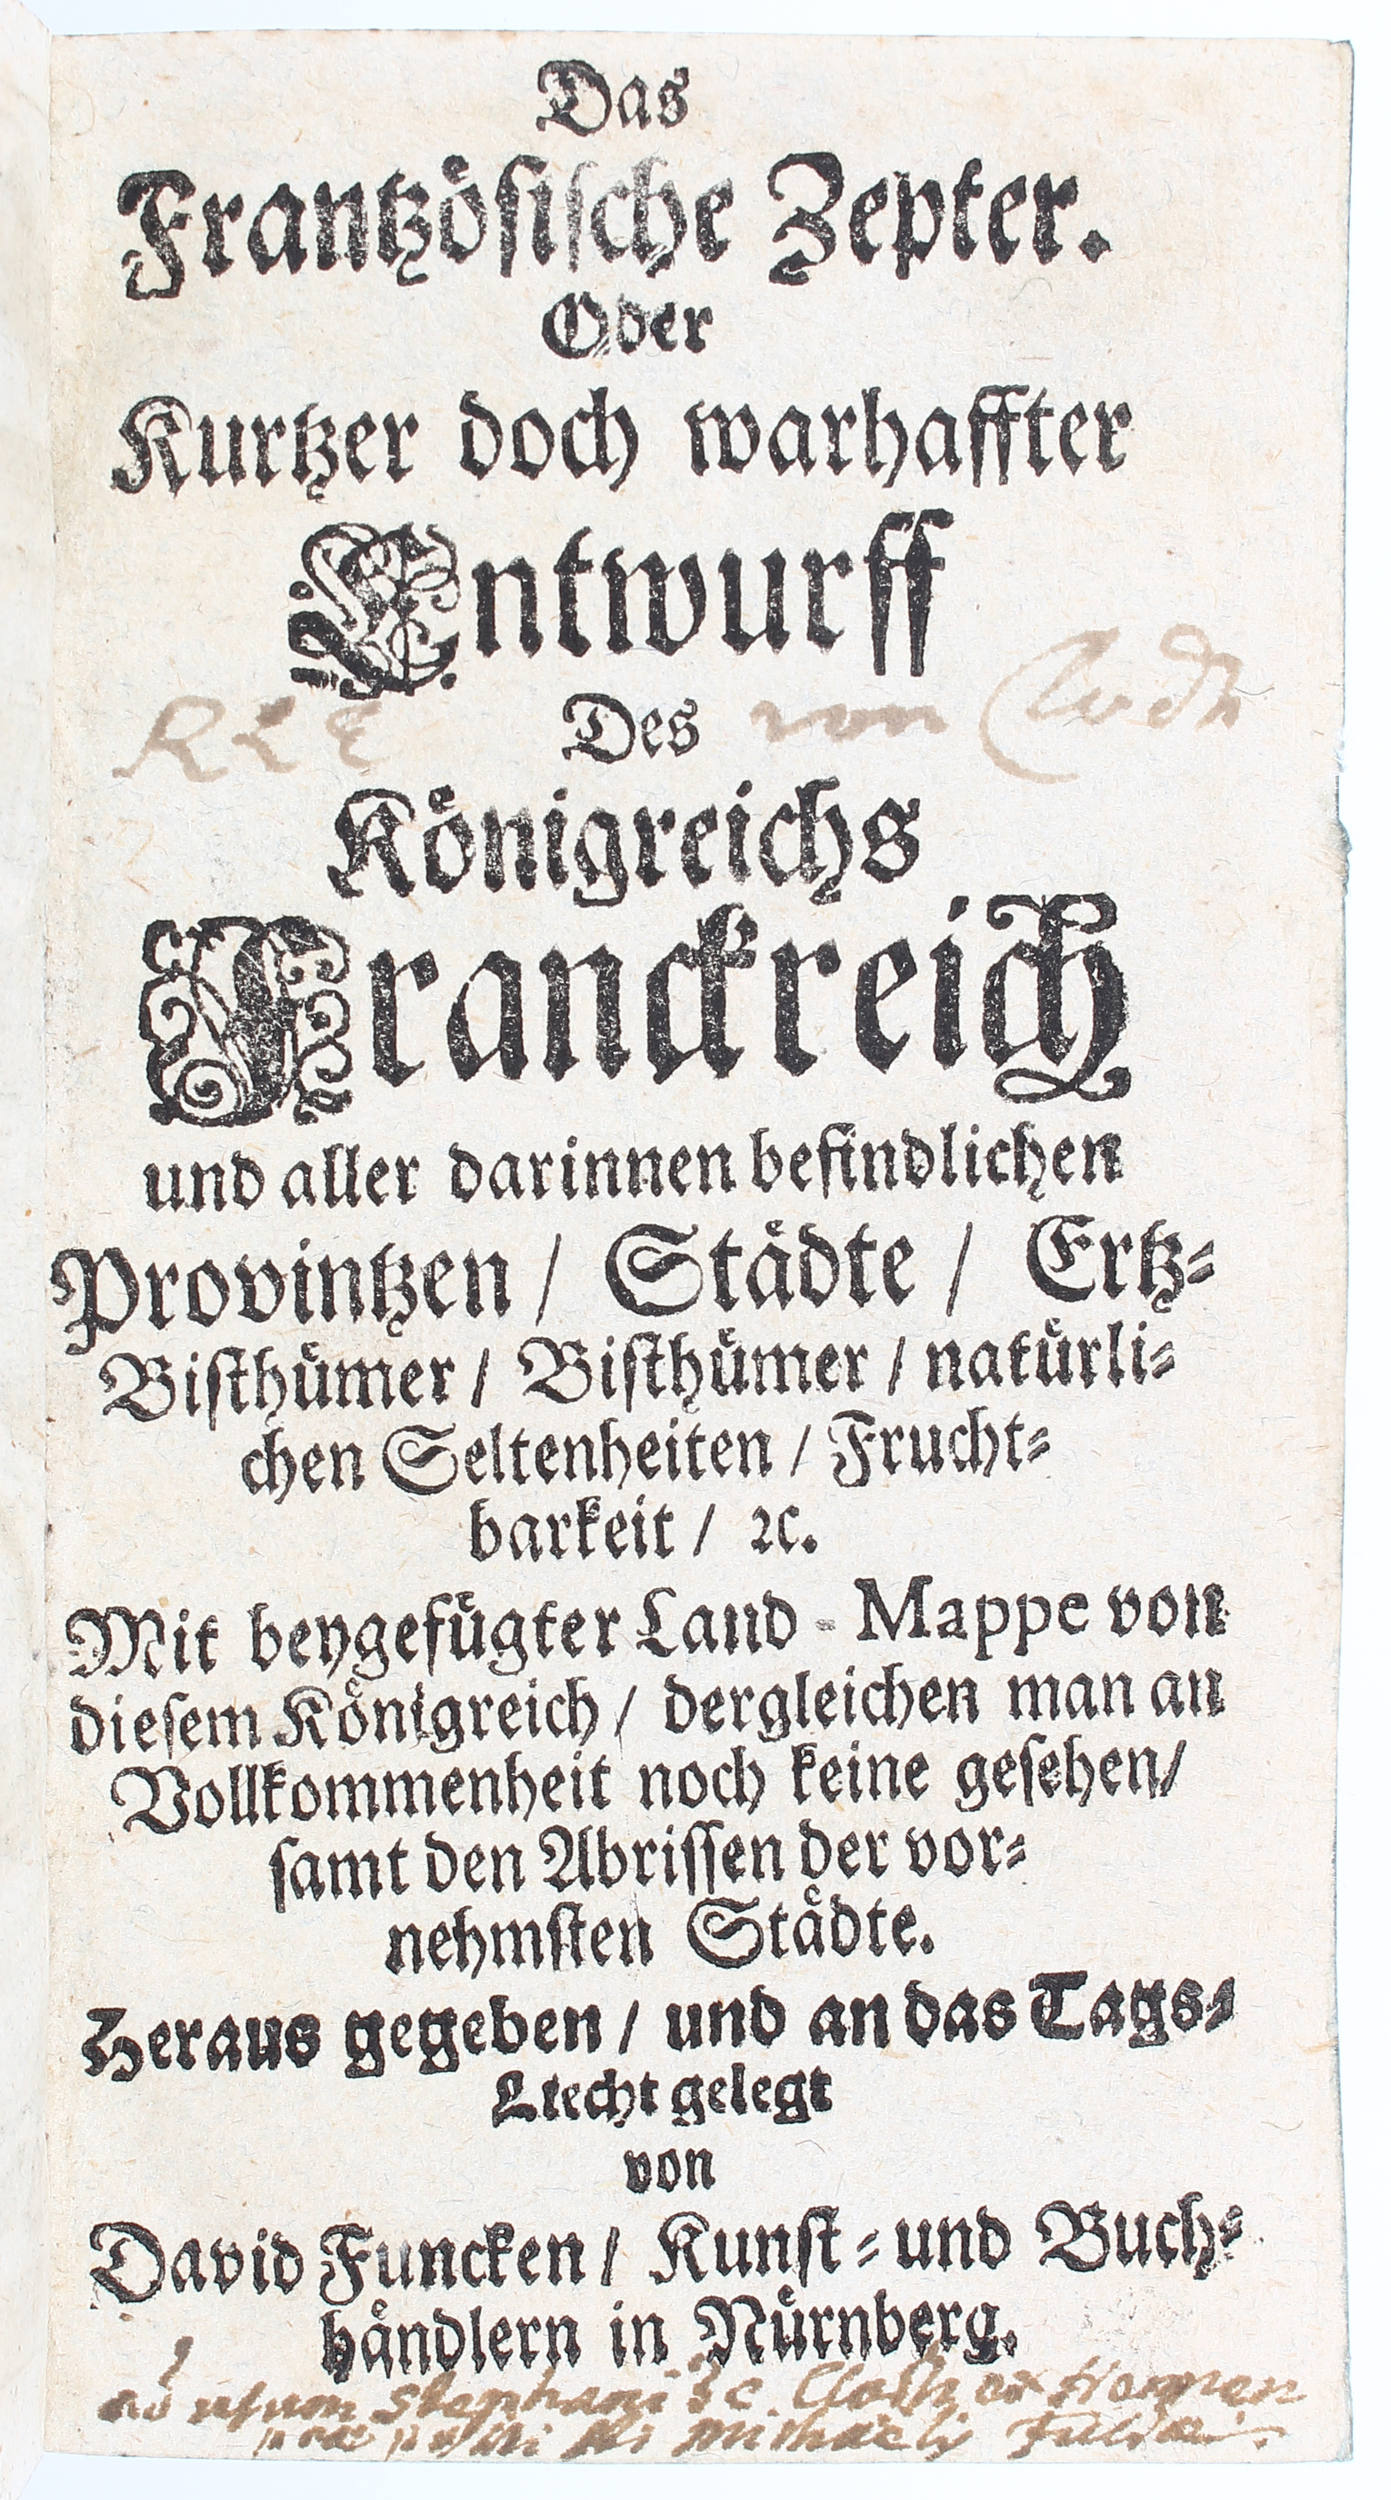 Das
Frantzöſiſche Zepter.
Oder
Kurtzer doch warhaffter
Entwurff
RLE Des von
Königreichs
Franckreich
und aller darinnen befindlichen
Provintzen / Städte / Ertz-
Biſthümer / Biſthümer / natürli-
chen Seltenheiten / Frucht-
barkeit / ꝛc.
Mit beygefügter Land-Mappe von
dieſem Königreich / dergleichen man an
Vollkommenheit noch keine geſehen /
ſamt den Abriſſen der vor-
nehmſten Städte.
Heraus gegeben / und an das Tags-
Liecht gelegt
von
David Funcken / Kunſt- und Buch-
händlern in Nürnberg.
ad uſum Stephani
Michaelis